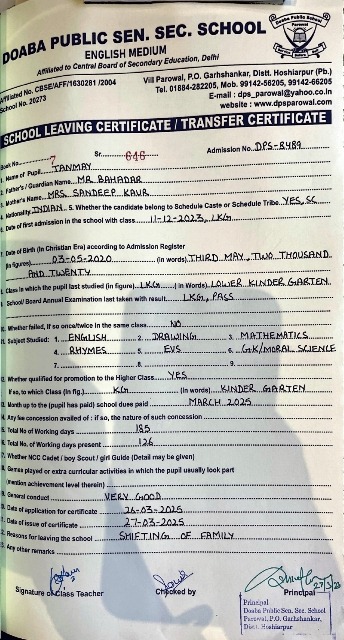 Doaba Public School
Parowal
DOABA PUBLIC SEN. SEC. SCHOOL
ENGLISH MEDIUM
Affiliated to Central Board of Secondary Education, Delhi
Affiliated No. CBSE/AFF/1630281 /2004
School No. 20273
Vill Parowal, P.O. Garhshankar, Distt. Hoshiarpur (Pb.)
Tel. 01884-282205, Mob. 99142-56205, 99142-66205
E-mail : dps_parowal@yahoo.co.in
website : www.dpsparowal.com
SCHOOL LEAVING CERTIFICATE / TRANSFER CERTIFICATE
Book No. 7 Sr. 646 Admission No. DPS-8489
1. Name of Pupil TANMAY
2. Father's / Guardian Name MR. BAHADAR
3. Mother's Name MRS. SANDEEP KAUR
4. Nationality INDIAN 5. Whether the candidate belong to Schedule Caste or Schedule Tribe YES, SC
6. Date of first admission in the school with class 11-12-2023, LKG
7. Date of Birth (in Christian Era) according to Admission Register
(in figures) 03-05-2020 (in words) THIRD MAY, TWO THOUSAND
AND TWENTY
Class in which the pupil last studied (in figure) LKG (in Words) LOWER KINDER GARTEN
School/ Board Annual Examination last taken with result LKG, PASS
Whether failed, if so once/twice in the same class NO
Subject Studied: 1. ENGLISH 2. DRAWING 3. MATHEMATICS
4. RHYMES 5. EVS 6. G.K/MORAL SCIENCE
7. 8. 9.
Whether qualified for promotion to the Higher Class YES
If so, to which Class (in fig.) KG (in words) KINDER GARTEN
Month up to the (pupil has paid) school dues paid MARCH 2025
Any fee concession availed of : if so, the nature of such concession
Total No of Working days 185
Total No. of Working days present 126
Whether NCC Cadet / boy Scout / girl Guide (Detail may be given)
Games played or extra curricular activities in which the pupil usually look part
(mention achievement level therein)
General conduct VERY GOOD
Date of application for certificate 26-03-2025
Date of issue of certificate 27-03-2025
Reasons for leaving the school SHIFTING OF FAMILY
Any other remarks
Signature of Class Teacher Checked by Principal
Principal
Doaba Public Sen. Sec. School
Parowal, P.O. Garhshankar,
Distt. Hoshiarpur